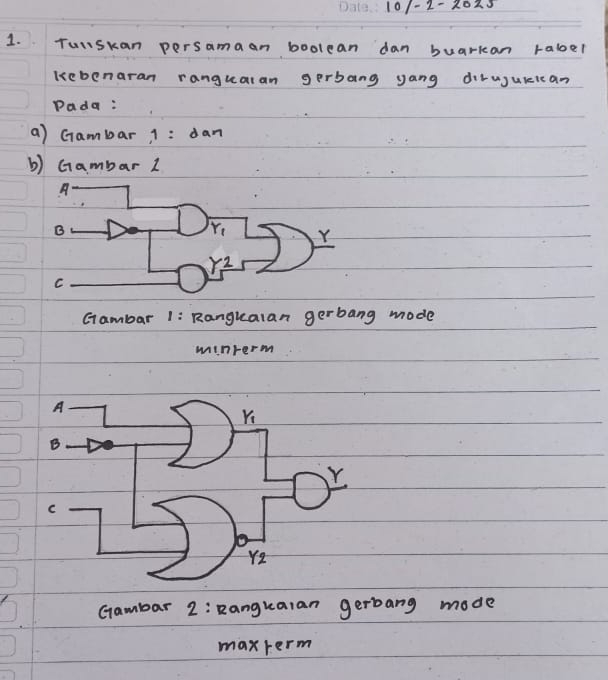 Date.: 10/-2-2025
1. Tuliskan persamaan boolean dan buarkan rabel
kebenaran rangkaian gerbang yang dirujukkan
pada :
a) Gambar 1 : dan
b) Gambar 2
A
B
Y1
Y
Y2
C
Gambar 1 : Rangkaian gerbang mode
minrerm
A
Y1
B
Y
C
Y2
Gambar 2 : Rangkaian gerbang mode
maxrerm